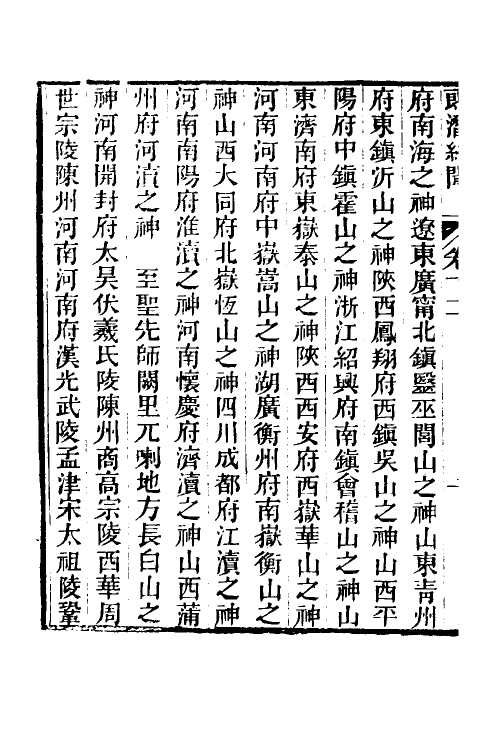 郎潛紀聞 卷十二 一
府南海之神遼東廣甯北鎭毉巫閭山之神山東靑州
府東鎭沂山之神陜西鳳翔府西鎭吳山之神山西平
陽府中鎭霍山之神浙江紹興府南鎭會稽山之神山
東濟南府東嶽泰山之神陜西西安府西嶽華山之神
河南河南府中嶽嵩山之神湖廣衡州府南嶽衡山之
神山西大同府北嶽恆山之神四川成都府江瀆之神
河南南陽府淮瀆之神河南懷慶府濟瀆之神山西蒲
州府河瀆之神 至聖先師闕里兀喇地方長白山之
神河南開封府太昊伏羲氏陵陳州商高宗陵西華周
世宗陵陳州河南河南府漢光武陵孟津宋太祖陵鞏